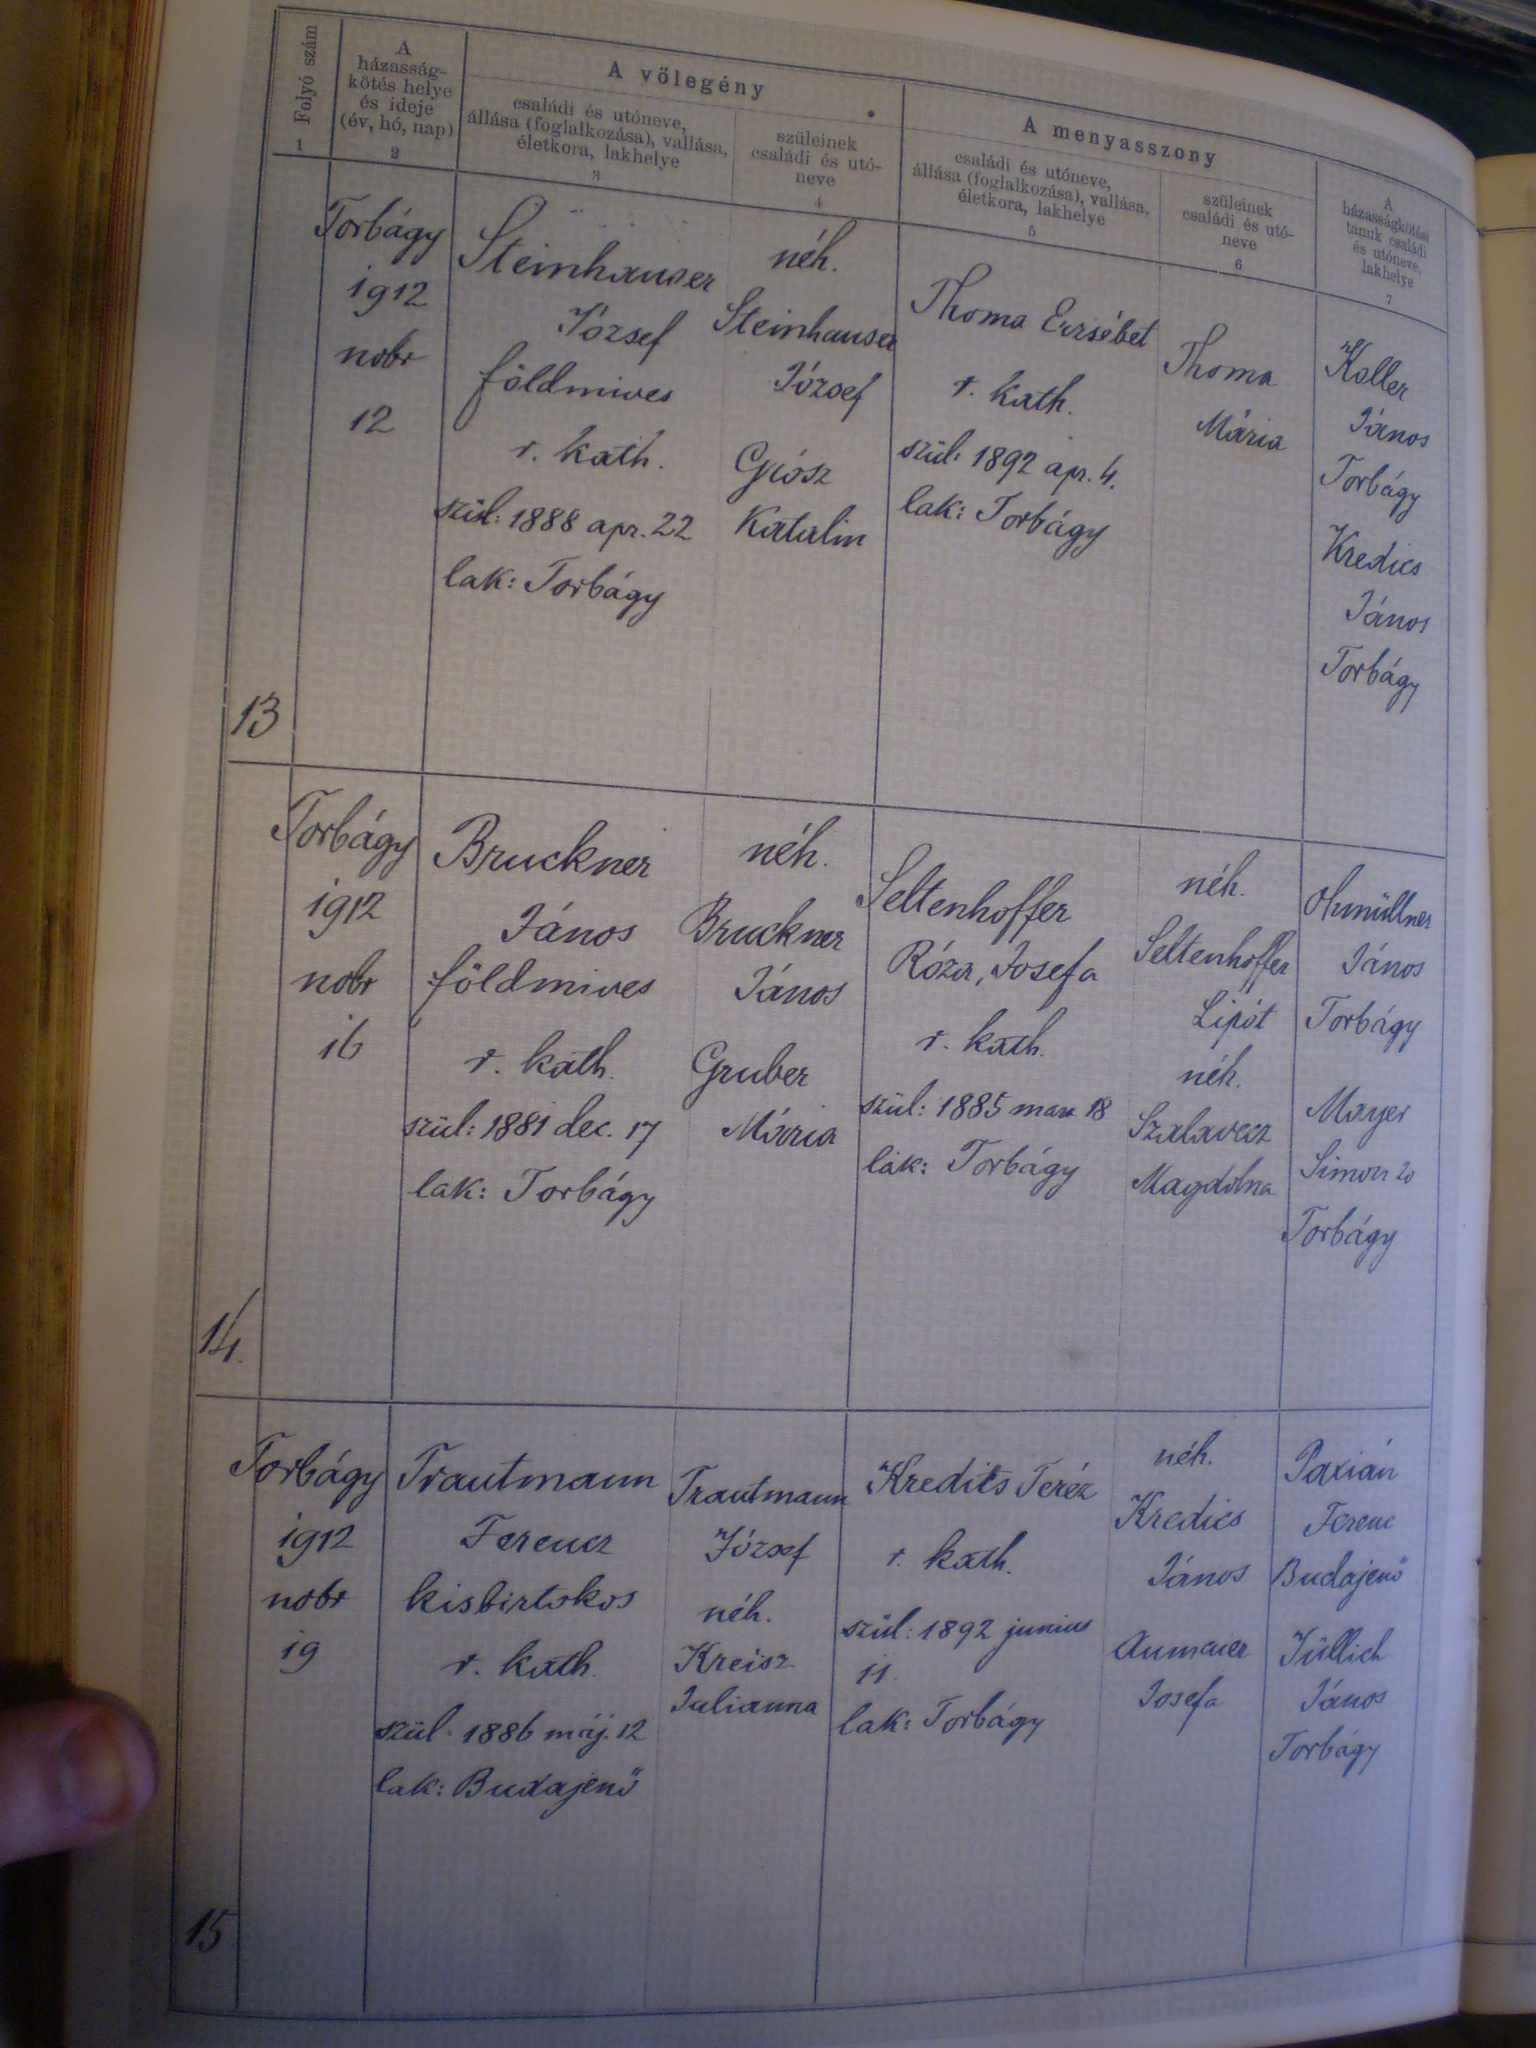 Folyó szám
1
A
házasság-
kötés helye
és ideje
(év, hó, nap)
2
A vőlegény
családi és utóneve,
állása (foglalkozása), vallása,
életkora, lakhelye
3
szüleinek
családi és utó-
neve
4
A menyasszony
családi és utóneve,
állása (foglalkozása), vallása,
életkora, lakhelye
5
szüleinek
családi és utó-
neve
6
A
házasságkötési
tanuk családi
és utóneve,
lakhelye
7
13
Torbágy
1912
nobr
12
Steinhauser
József
földmives
r. kath.
szül: 1888 apr. 22
lak: Torbágy
néh.
Steinhauser
József
Giósz
Katalin
Thoma Erzsébet
r. kath.
szül: 1892 apr. 4.
lak: Torbágy
Thoma
Mária
Koller
János
Torbágy
Kredics
János
Torbágy
14.
Torbágy
1912
nobr
16
Bruckner
János
földmives
r. kath.
szül: 1881 dec. 17
lak: Torbágy
néh.
Bruckner
János
Gruber
Mária
Seltenhoffer
Róza, Josefa
r. kath.
szül: 1885 mar 18
lak: Torbágy
néh.
Seltenhoffer
Lipót
néh.
Szalavecz
Magdolna
Ohmüllner
János
Torbágy
Mayer
Simon
Torbágy
15
Torbágy
1912
nobr
19
Trautmann
Ferencz
kisbirtokos
r. kath.
szül. 1886 máj. 12
lak: Budajenő
Trautmann
József
néh.
Kreisz
Julianna
Kredits Teréz
r. kath.
szül: 1892 junius
11.
lak: Torbágy
néh.
Kredics
János
Aumaier
Josefa
Paxián
Ferenc
Budajenő
Jüllich
János
Torbágy